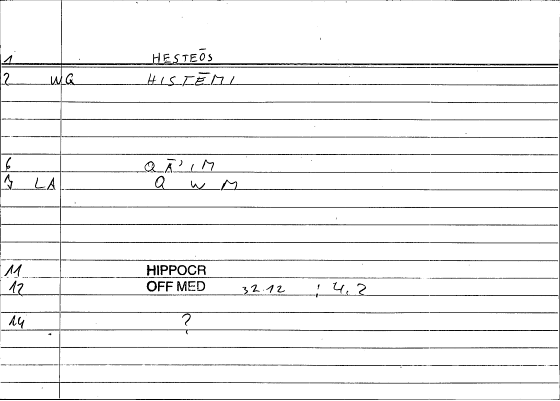 1 HESTEŌS
2 WQ HISTĒMI
6 Q Ā', M
7 LA Q W M
11 HIPPOCR
12 OFF MED 32.12 ; 4.2
14 ?